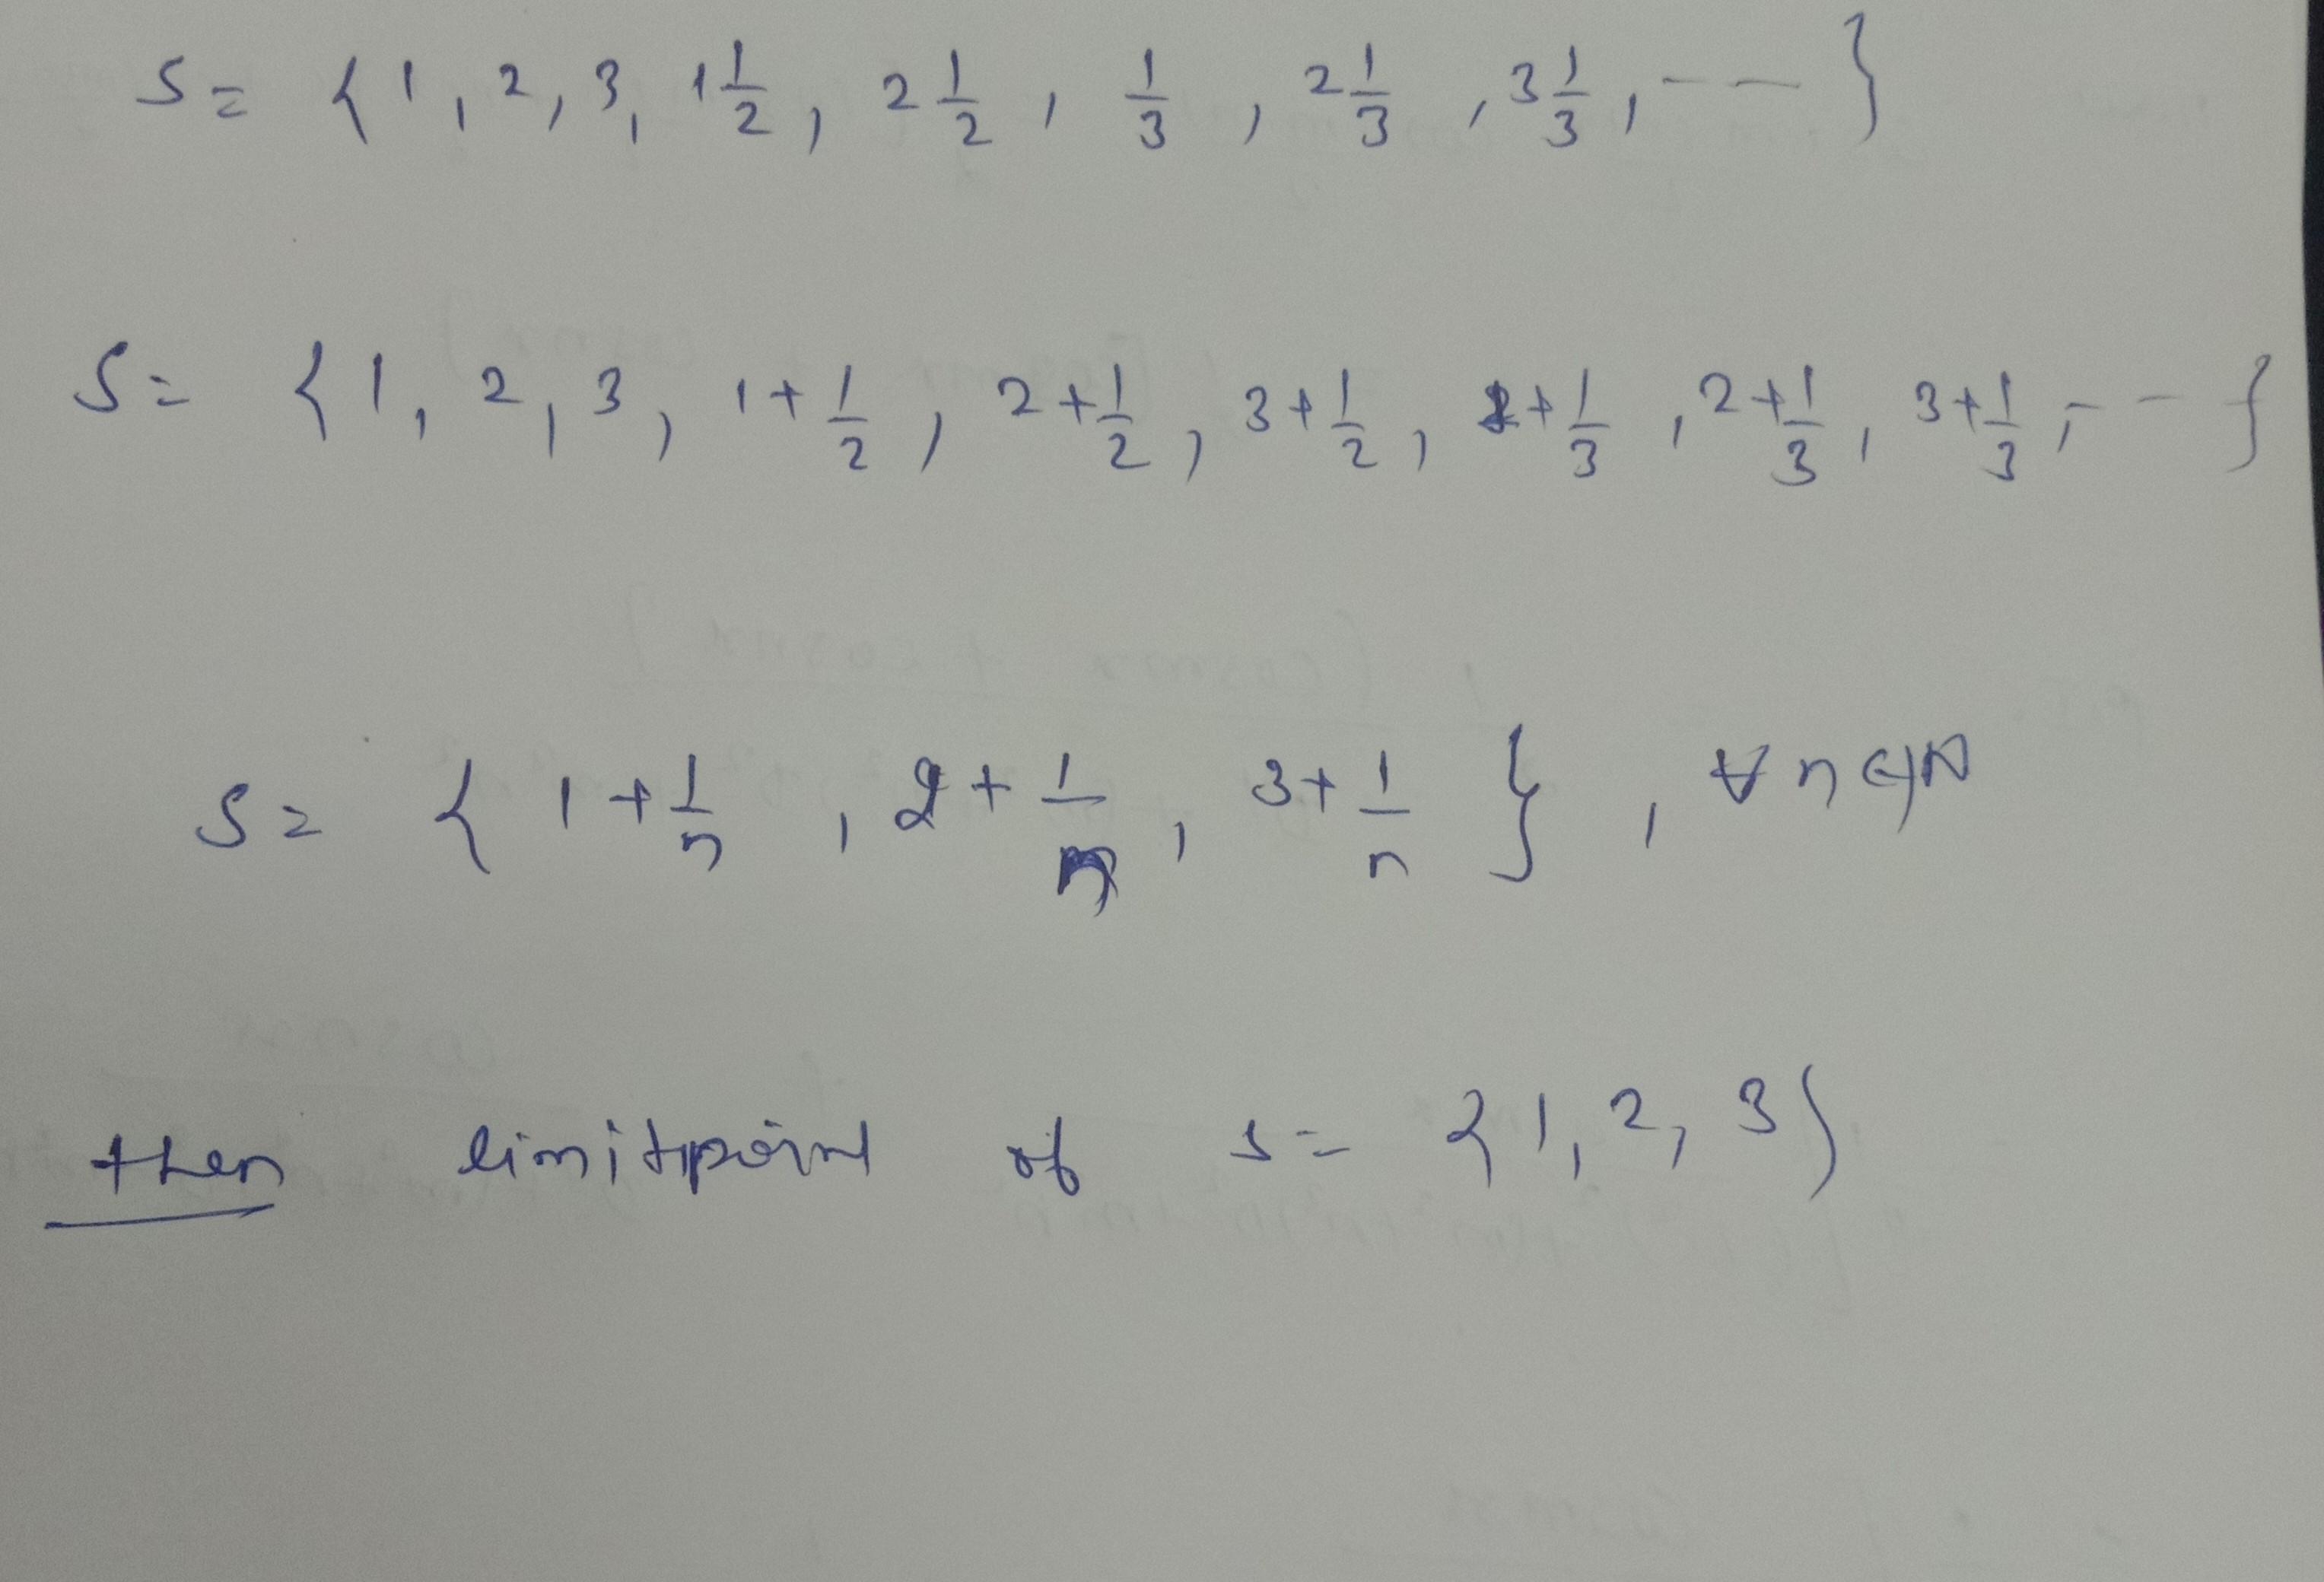 S = { 1, 2, 3, 1 1/2, 2 1/2, 1/3, 2 1/3, 3 1/3, - - }
S = { 1, 2, 3, 1 + 1/2, 2 + 1/2, 3 + 1/2, 1 + 1/3, 2 + 1/3, 3 + 1/3, - - }
S = { 1 + 1/n, 2 + 1/n, 3 + 1/n }, ∀ n ∈ N
then limit point of S = { 1, 2, 3 }